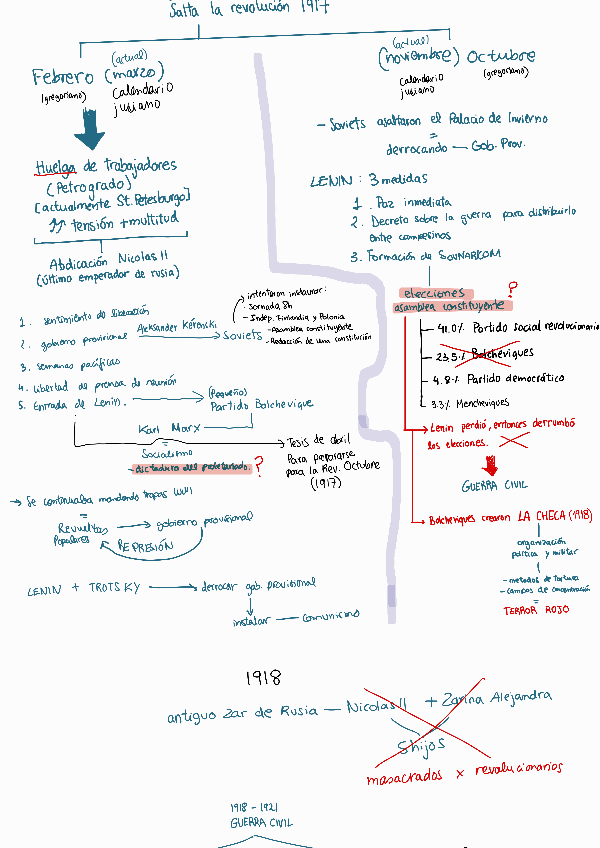 Salta la revolución 1917
Febrero (marzo)
(actual)
(gregoriano)
calendario
jusiano
Huelga de trabajadores
(Petrogrado)
[actualmente St. Petesburgo]
↑↑ tensión + multitud
Abdicación Nicolas II
(último emperador de rusia)
1. sentimiento de liberación
2. gobierno provisional Aleksander Kérenski → Soviets
intentaron instaurar:
- Jornada 8h
- Indep. Finlandia y Polonia
- Asamblea constituyente
- Redacción de una constitución
3. semanas pacíficas
4. libertad de prensa de reunión
5. Entrada de Lenin. → Partido Bolchevique
(Pequeño)
Karl Marx
=
Socialismo
- dictadura del proletariado. ?
Tesis de abril
Para prepararse
para la Rev. Octubre
(1917)
→ Se continuaba mandando tropas WWI
=
Revueltas → gobierno provisional
Populares
REPRESIÓN
LENIN + TROTSKY → derrocar gob. provisional
instalar — comunismo
(noviembre) Octubre
(actual)
(gregoriano)
calendario
jusiano
- Soviets asaltaron el Palacio de Invierno
=
derrocando — Gob. Prov.
LENIN : 3 medidas
1. Paz inmediata
2. Decreto sobre la guerra para distribuirlo
entre campesinos
3. Formación de SOVNARKOM
elecciones ?
asamblea constituyente
41.0% Partido social revolucionario
23.5% Bolcheviques
4.8% Partido democrático
3.3% Mencheviques
Lenin perdió, entonces derrumbó
las elecciones.
GUERRA CIVIL
Bolcheviques crearon LA CHECA (1918)
organización
política y militar
- metodos de tortura
- campos de concentración
=
TERROR ROJO
1918
antiguo zar de Rusia — Nicolas II + Zarina Alejandra
5 hijos
masacrados x revolucionarios
1918 - 1921
GUERRA CIVIL